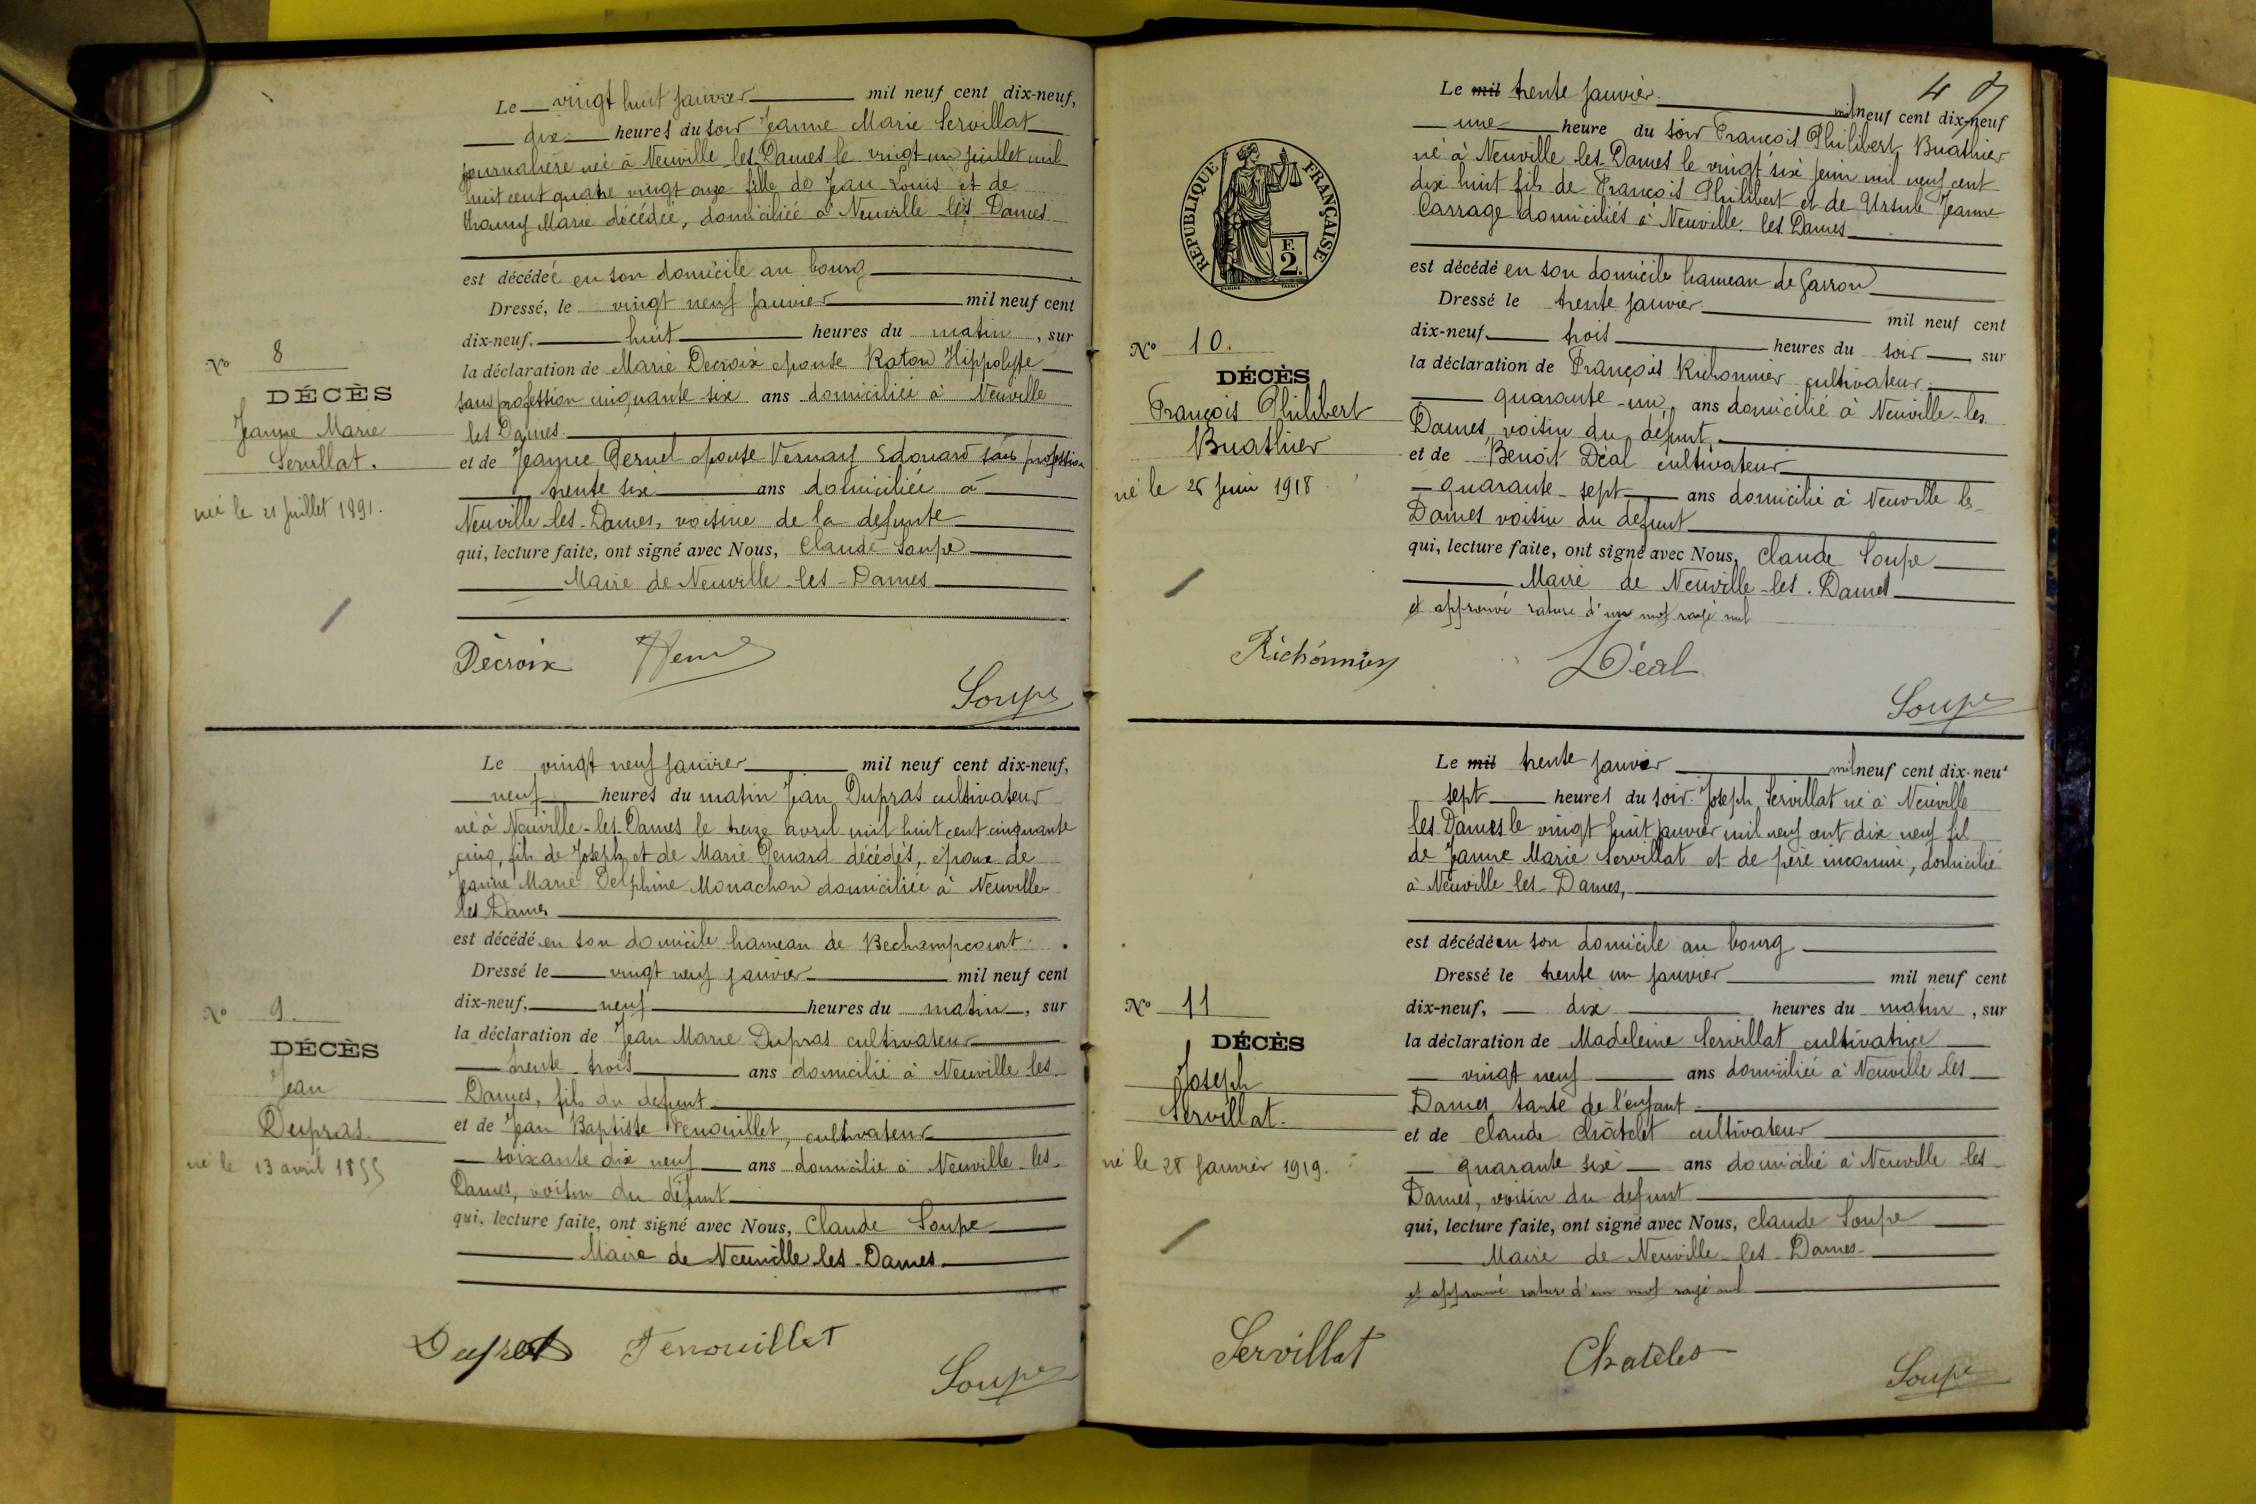 Le vingt huit janvier mil neuf cent dix-neuf,
dix heures du soir Jeanne Marie Servillat
journalière née à Neuville les Dames le vingt un juillet mil
huit cent quatre vingt onze fille de Jean Louis et de
Marie décédée, domiciliée à Neuville les Dames
est décédée en son domicile au bourg
Dressé, le vingt neuf janvier mil neuf cent
dix-neuf, huit heures du matin, sur
No 8
la déclaration de Marie Decroix épouse Raton Hippolyte
DÉCÈS
sans profession cinquante six ans domiciliée à Neuville
Jeanne Marie
les Dames
Servillat.
et de Jeanne épouse Edouard sans profession
trente six ans domiciliée à
née le 21 juillet 1891.
Neuville-les-Dames, voisine de la défunte
qui, lecture faite, ont signé avec Nous, Claude Soupe
Maire de Neuville-les-Dames
Dècroix
Soupe
Le vingt neuf janvier mil neuf cent dix-neuf,
neuf heures du matin Jean Dupras cultivateur
né à Neuville-les-Dames le treize avril mil huit cent cinquante
cinq, fils de Joseph et de Marie décédés, époux de
Jeanne Marie Delphine Monachon domiciliée à Neuville
les Dames
est décédé en son domicile hameau de Bechampcourt.
Dressé le vingt neuf janvier mil neuf cent
dix-neuf, neuf heures du matin, sur
No 9.
la déclaration de Jean Marie Dupras cultivateur
DÉCÈS
trente trois ans domicilié à Neuville les
Jean
Dames, fils du défunt
Dupras.
et de Jean Baptiste Fenouillet, cultivateur
né le 13 avril 1855
soixante dix neuf ans domicilié à Neuville-les-
Dames, voisin du défunt
qui, lecture faite, ont signé avec Nous, Claude Soupe
Maire de Neuville-les-Dames
Dupras Fenouillet
Soupe
4
Le mil trente janvier mil neuf cent dix-neuf
une heure du soir François Philibert Buathier
né à Neuville les Dames le vingt six juin mil neuf cent
dix huit fils de François Philibert et de Ursule Jeanne
Carrage domiciliés à Neuville les Dames
RÉPUBLIQUE FRANÇAISE
F.
2.
est décédé en son domicile hameau de Garron
Dressé le trente janvier mil neuf cent
dix-neuf trois heures du soir sur
No 10.
la déclaration de François Richonnier cultivateur
DÉCÈS
quarante-un ans domicilié à Neuville-les
François Philibert
Dames voisin du défunt
Buathier
et de Benoît Déal cultivateur
né le 26 juin 1918
quarante-sept ans domicilié à Neuville les
Dames voisin du défunt
qui, lecture faite, ont signé avec Nous, Claude Soupe
Maire de Neuville-les-Dames
et approuvé rature d'un mot rayé nul
Richonnier Déal
Soupe
Le mil trente janvier mil neuf cent dix-neuf
sept heures du soir Joseph Servillat né à Neuville
les Dames le vingt huit janvier mil neuf cent dix neuf fil
de Jeanne Marie Servillat et de père inconnu, domicilié
à Neuville-les-Dames,
est décédé en son domicile au bourg
Dressé le trente un janvier mil neuf cent
No 11
dix-neuf, dix heures du matin, sur
DÉCÈS
la déclaration de Madeleine Servillat cultivatrice
Joseph
vingt neuf ans domiciliée à Neuville les
Servillat.
Dames tante de l'enfant
et de Claude Châtelet cultivateur
né le 28 janvier 1919.
quarante six ans domicilié à Neuville les
Dames, voisin du défunt
qui, lecture faite, ont signé avec Nous, Claude Soupe
Maire de Neuville-les-Dames
et approuvé rature d'un mot rayé nul
Servillat Chatelet
Soupe